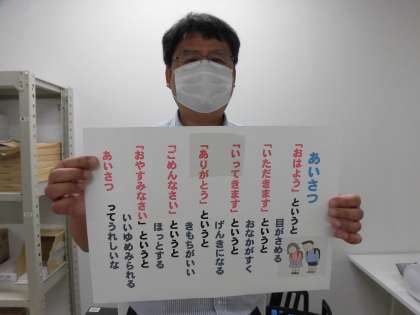 あいさつ
「おはよう」というと
目がさめる
「いただきます」というと
おなかがすく
「いってきます」というと
げんきになる
「ありがとう」というと
きもちがいい
「ごめんなさい」というと
ほっとする
「おやすみなさい」というと
いいゆめみられる
あいさつ ってうれしいな